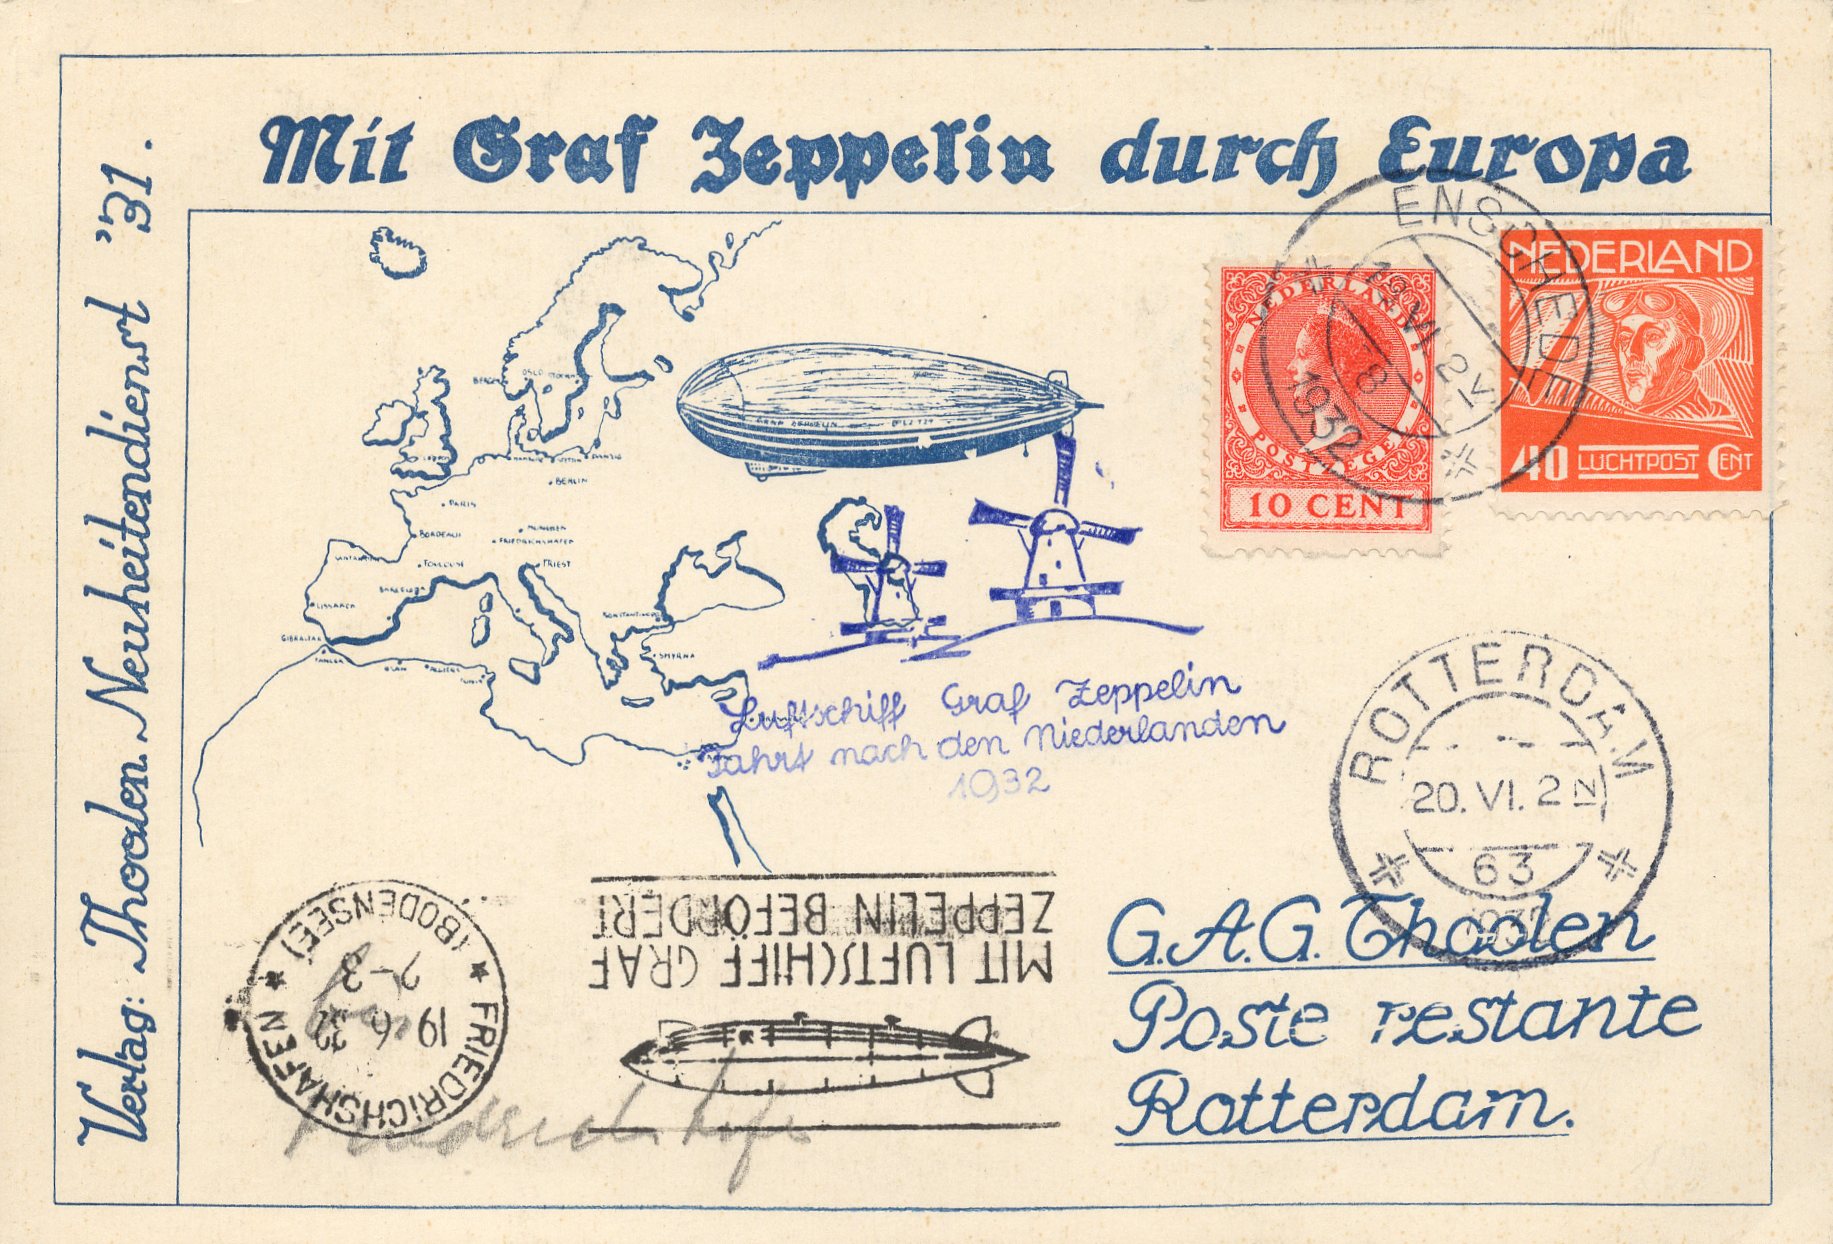 Mit Graf Zeppelin durch Europa
Verlag: Thoolen Neuheitendienst '31.
NEDERLAND
POSTZEGEL
10 CENT
NEDERLAND
40 LUCHTPOST CENT
ENSCHEDE
19 VI 2 V
8
1932
GRAF ZEPPELIN
BERGEN
OSLO
LONDON
DANZIG
BERLIN
PARIS
BORDEAUX
MÜNCHEN
FRIEDRICHSHAFEN
TOULOUSE
TRIEST
BARCELONA
LISSABON
GIBRALTAR
TANGER
ORAN
ALGIERS
KONSTANTINOPEL
SMYRNA
Luftschiff Graf Zeppelin
Fahrt nach den Niederlanden
1932
ROTTERDAM
20. VI. 2 N
63
1932
MIT LUFTSCHIFF GRAF
ZEPPELIN BEFÖRDERT
FRIEDRICHSHAFEN
(BODENSEE)
19 6 32
2-3
Friedrichshafen
G.A.G. Thoolen
Poste restante
Rotterdam.